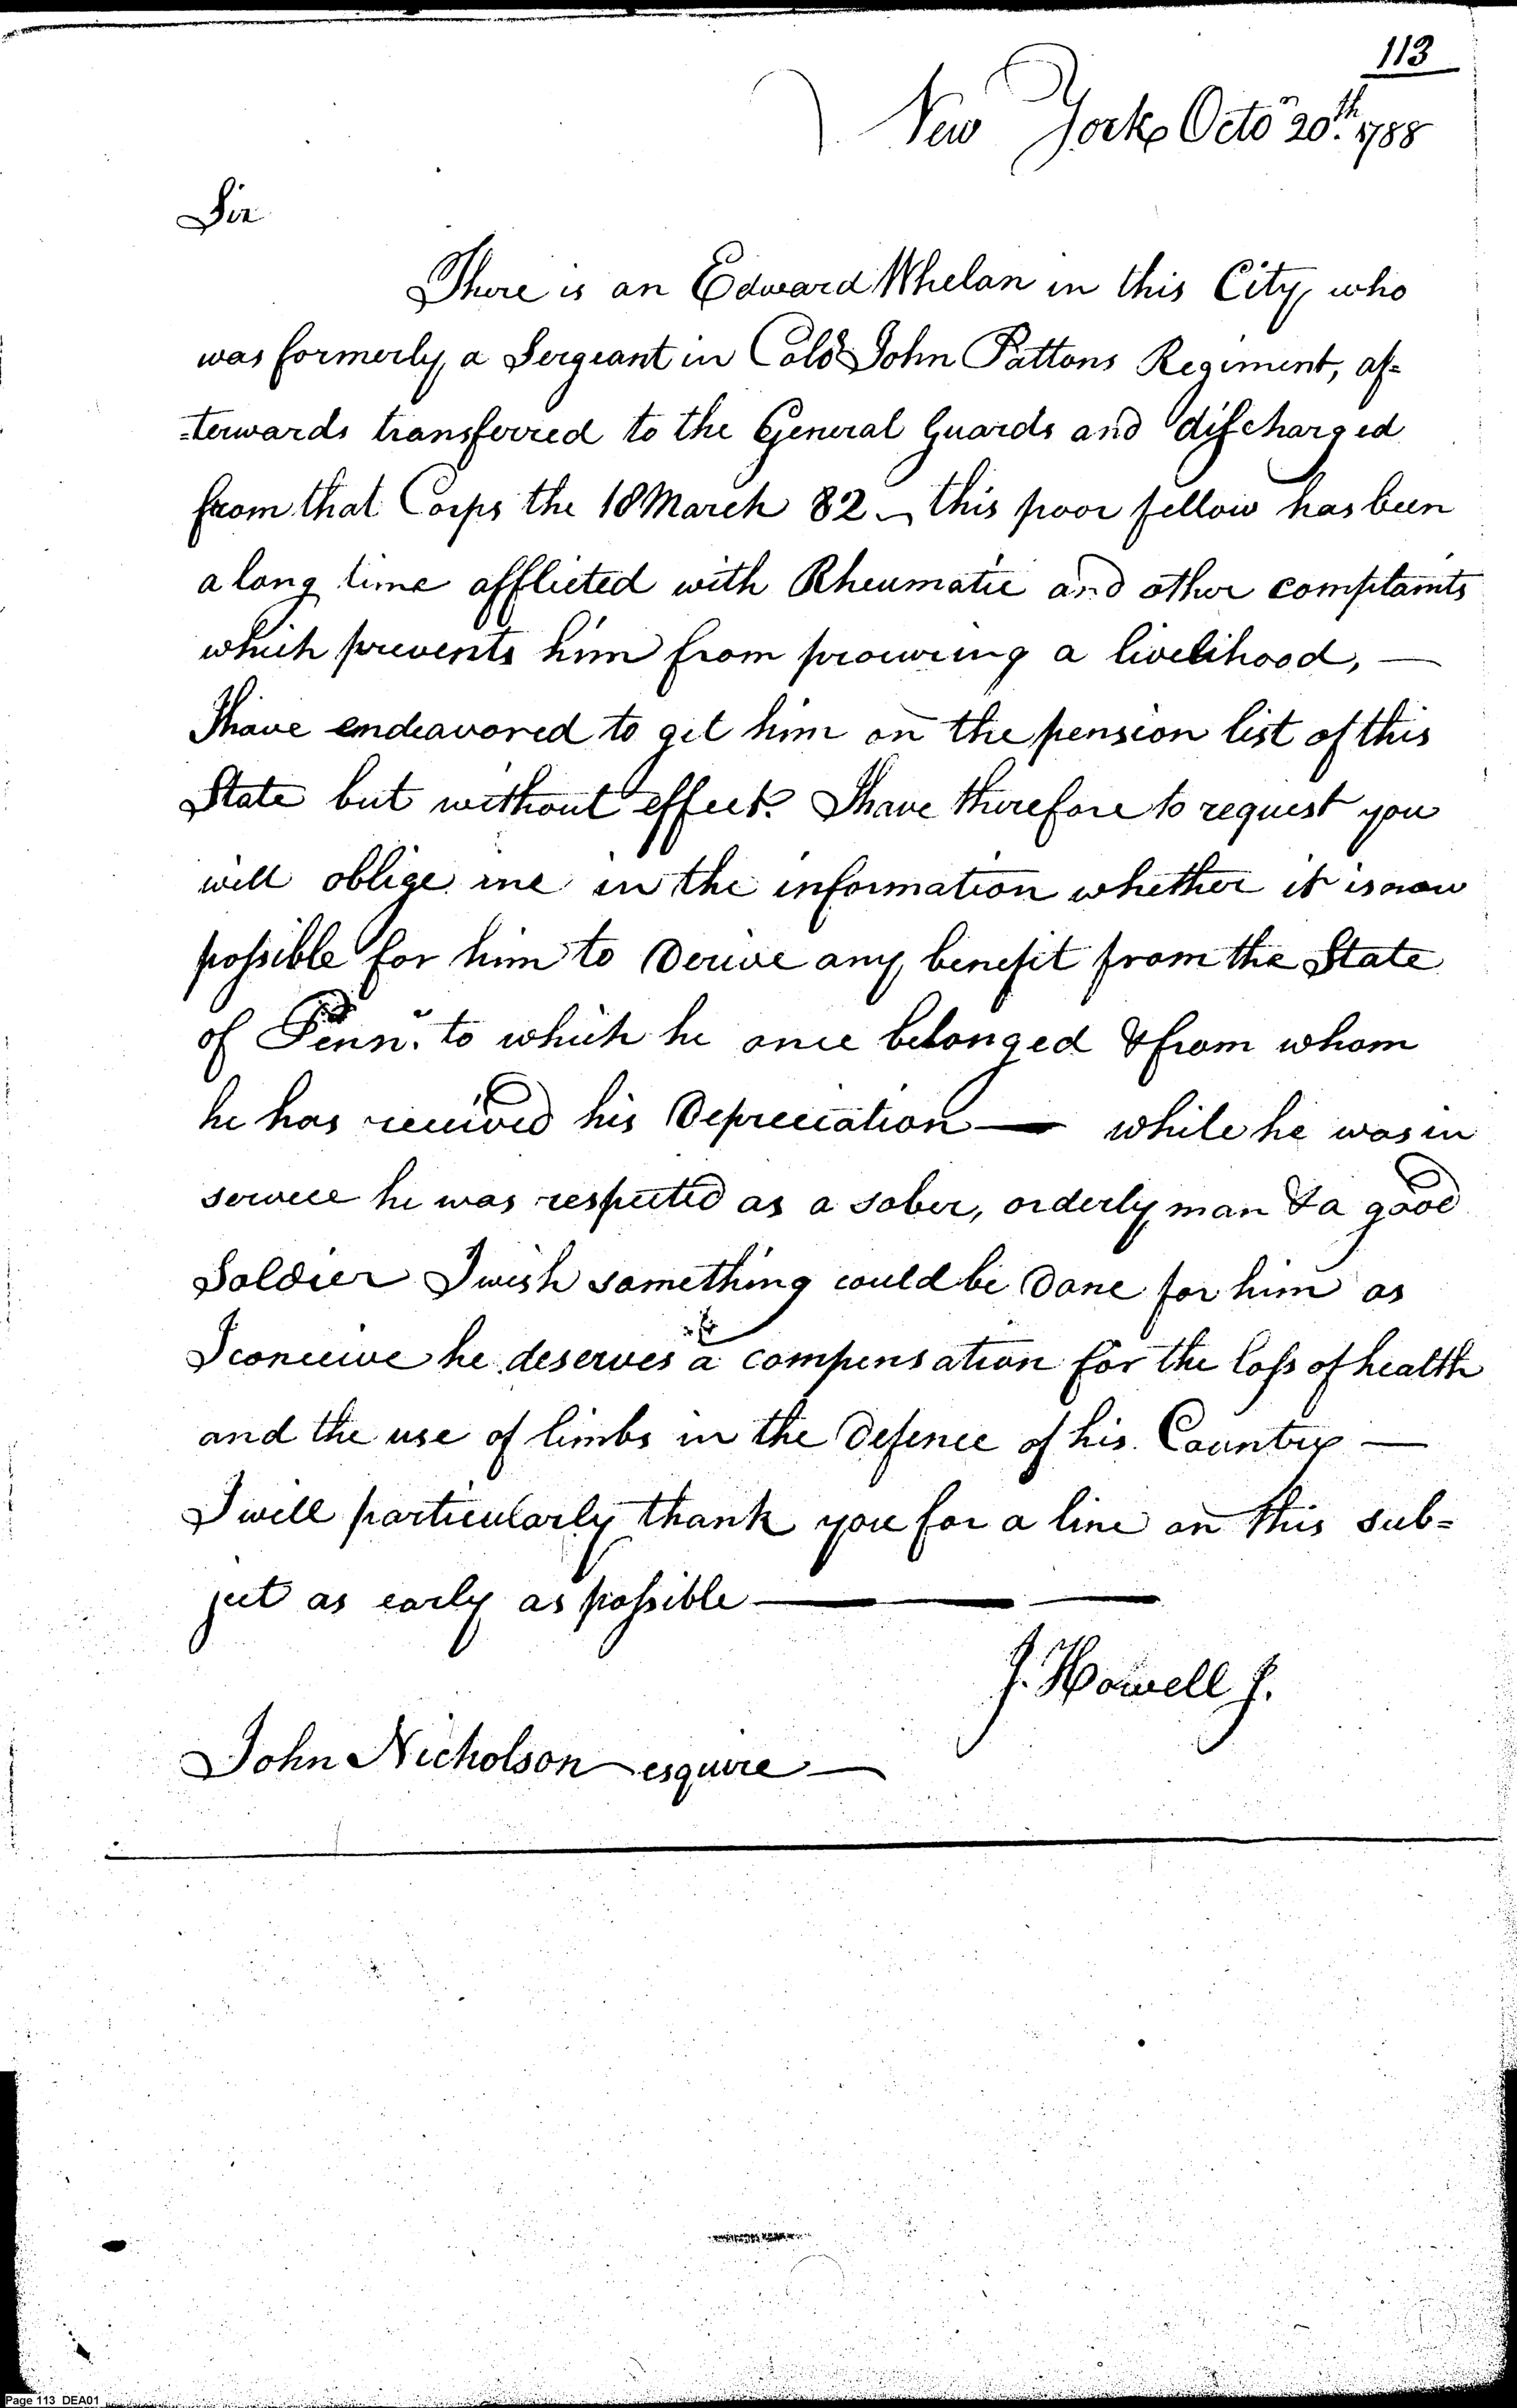 113
New York Octor 20th. 1788
Sir
There is an Edward Whelan in this City, who
was formerly a Sergeant in Colo John Pattons Regiment, af=
=terwards transferred to the General Guards and discharged
from that Corps the 18 March 82 this poor fellow has been
a long time afflicted with Rheumatic and other complaints
which prevents him from procuring a livelihood, —
I have endeavored to get him on the pension list of this
State but without effect. I have therefore to request you
will oblige me in the information whether it is now
possible for him to derive any benefit from the State
of Penna. to which he once belonged & from whom
he has received his Depreciation — while he was in
service he was respected as a sober, orderly man & a good
Soldier I wish something could be done for him as
I conceive he deserves a compensation for the loss of health
and the use of limbs in the defence of his Country —
I will particularly thank you for a line on this sub=
ject as early as possible ———
J. Howell J.
John Nicholson esquire —
Page 113 DEA01